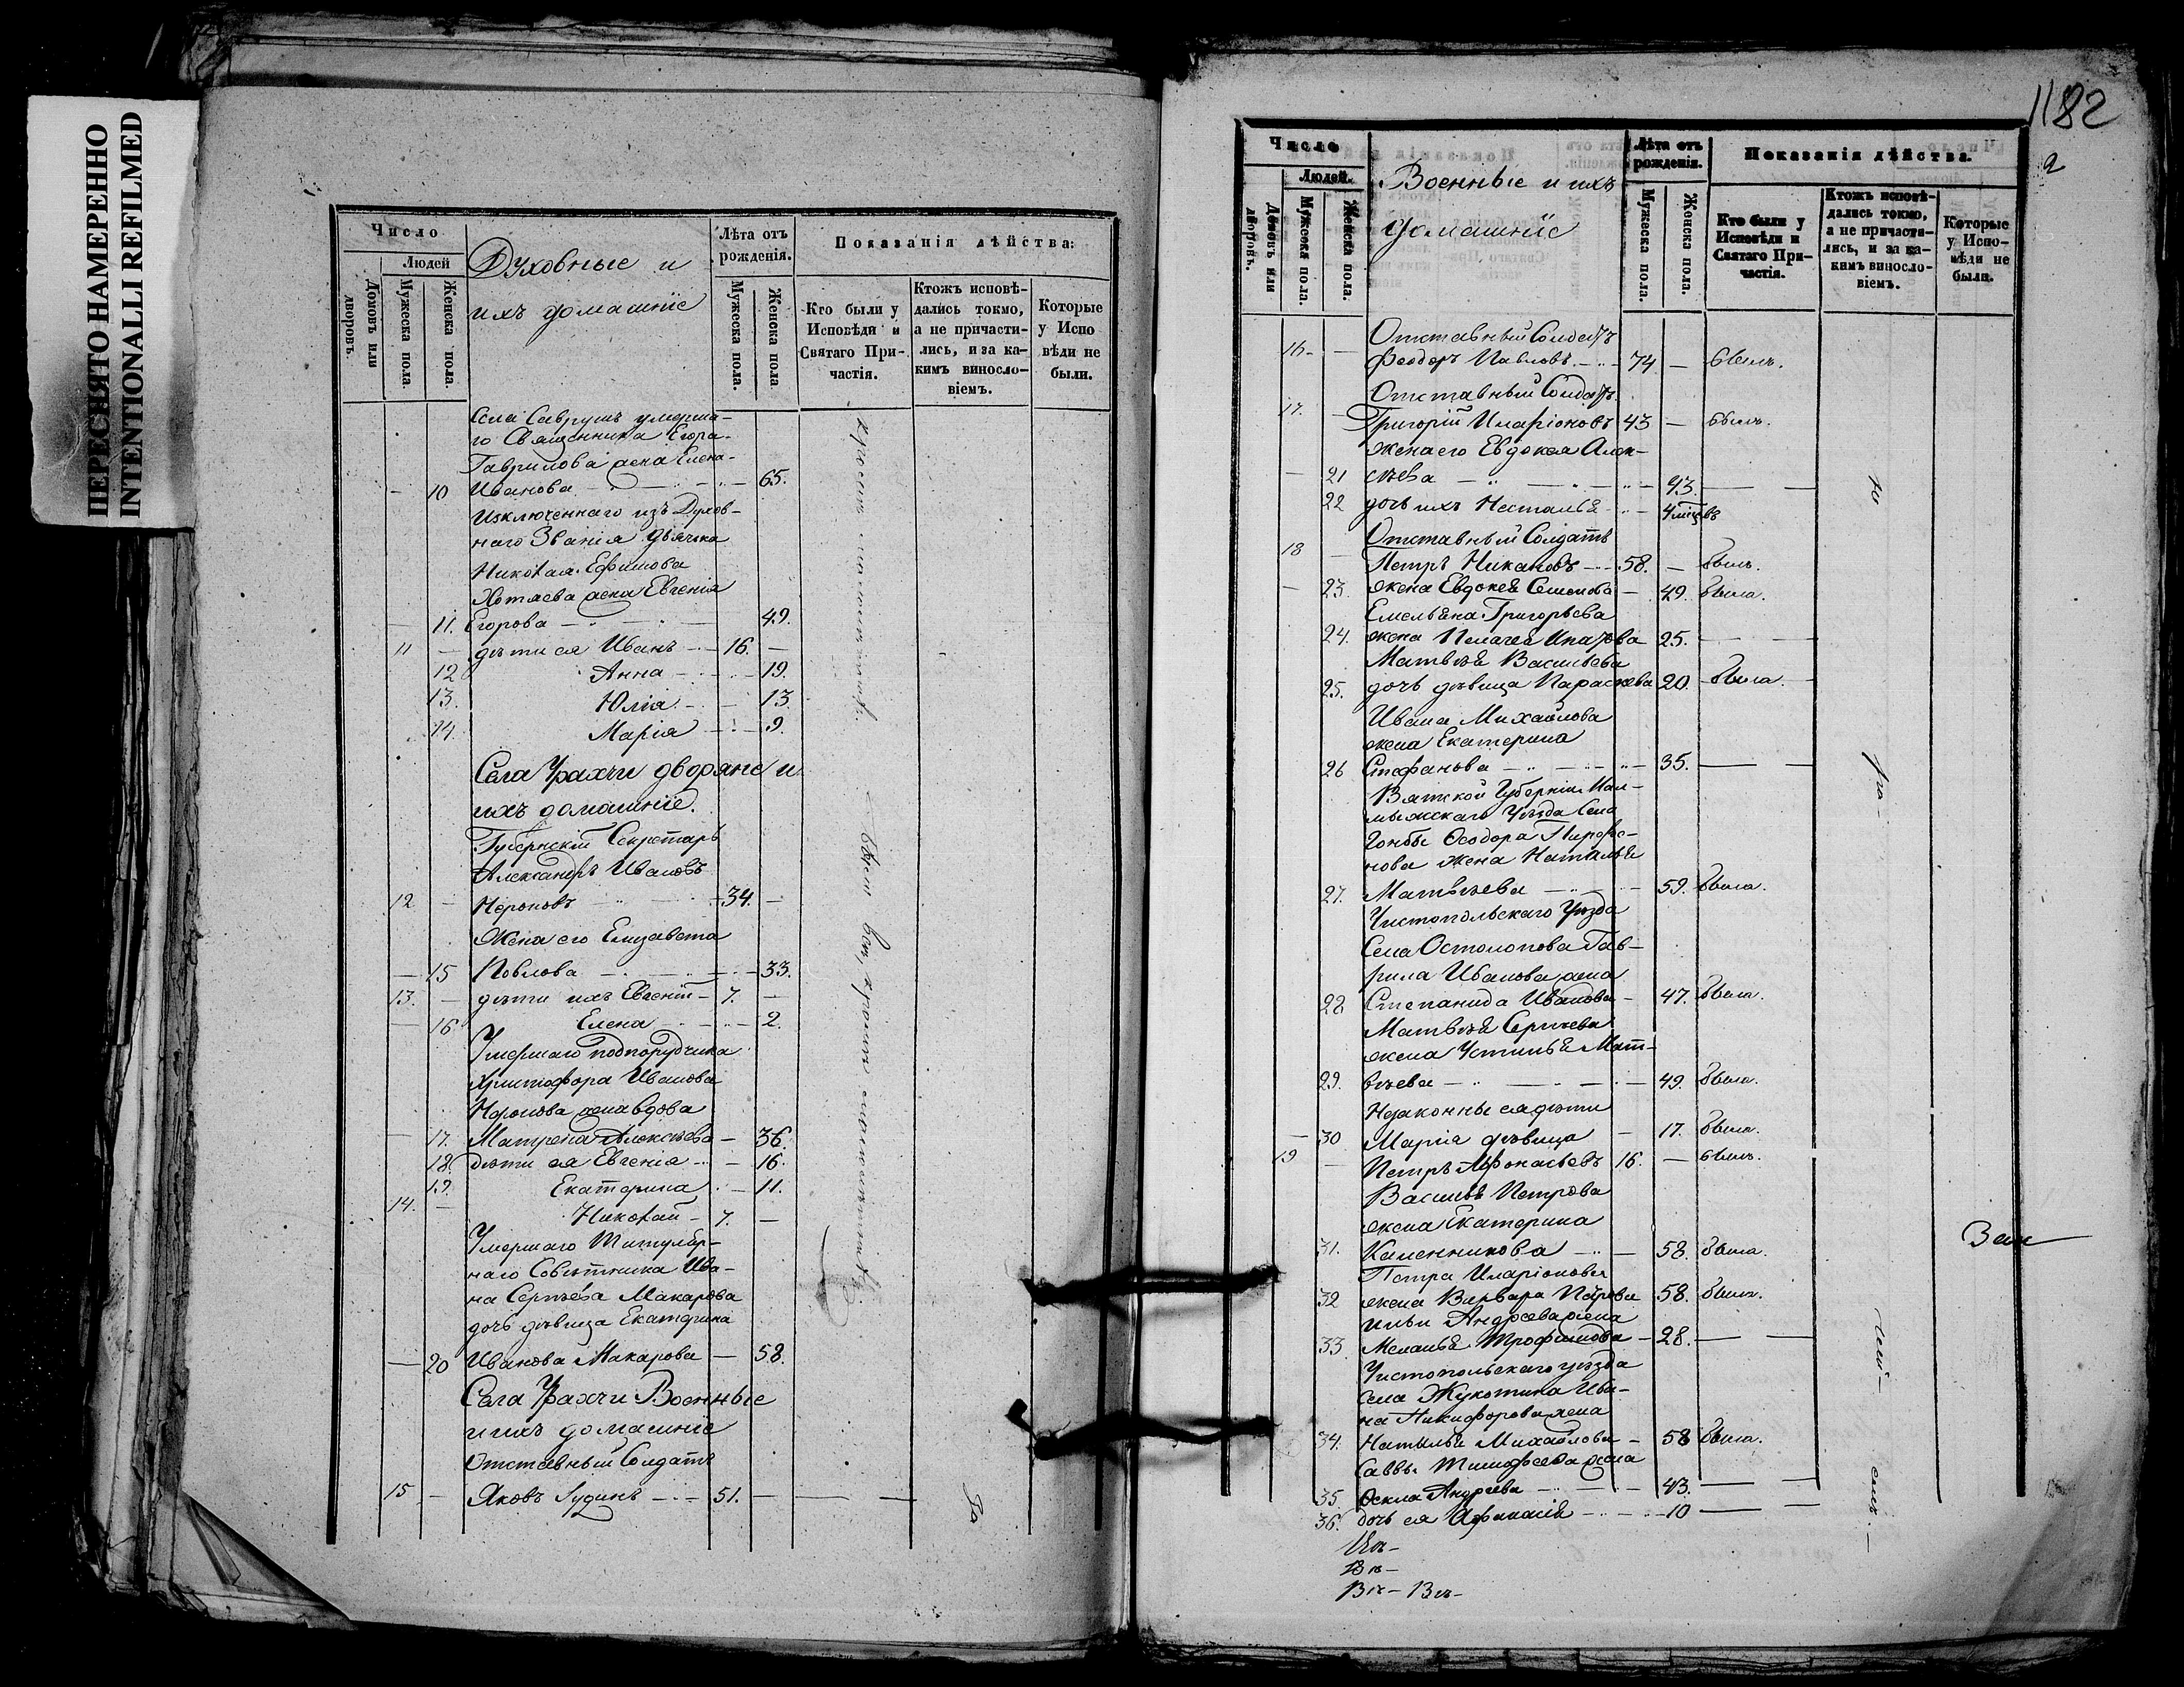 ПЕРЕСНЯТО НАМЕРЕННО
INTENTIONALLI REFILMED
Число
Людей
Домовъ или дворовъ.
Мужеска пола
Женска пола.
Духовные и
ихъ домашніе
Лѣта отъ рожденія.
Мужеска пола.
Женска пола
Показанія дѣйства:
Кто были у Исповѣди и Святаго При-частія.
Ктожъ исповѣ-дались токмо, а не причасти-лись, и за ка-кимъ винослo-віемъ.
Которые у Испо вѣди не были.
Села Саврушъ умерша-
го Священника Егора
Гаврилова жена Елена
10 Иванова 65.
Изключеннаго изъ Духов-
наго Званія дьячка
Николая Ефимова
Хотяева жена Евгенія
11. Егорова 49.
11 — дѣти ея Иванъ — 16. —
12 Анна — 19.
13. Юлія — 13.
14. Марія — 9.
Села Урахчи дворяне и
ихъ домашніе.
Губернскій Секретарь
Александръ Ивановъ
12 — Нероновъ — 34. —
Жена его Елизавета
— 15 Павлова — 33.
13. — дѣти ихъ Евгеній — 7. —
— 16 Елена — 2.
Умершаго подпорудчика
Христофора Иванова
Неронова жена вдова
— 17. Матрена Алексѣева — 36.
18. дѣти ея Евгенія — 16.
19. Екатерина — 11.
14. — Николай — 7. —
Умершаго Титуляр-
наго Совѣтника Ива-
на Сергѣева Макарова
дочь дѣвица Екатерина
— 20 Иванова Макарова — 58.
Села Урахчи Военные
и ихъ домашніе
Отставный Солдатъ
15 — Яковъ Юдинъ — 51. — — —
1182
2
Число
Людей.
Домовъ или дворовъ.
Мужеска пола.
Женска пола.
Военные и ихъ
домашніе
Лѣта отъ рожденія.
Мужеска пола.
Женска пола.
Показанія дѣйства.
Кто были у Исповѣди и Святаго При-частія.
Ктожъ исповѣ-дались токмо, а не причасти-лись, и за ка-кимъ винослo-віемъ.
Которые у Испо-вѣди не были.
Отставный Солдатъ
16 — Феодоръ Павловъ — 74 — былъ.
Отставный Солдатъ
17. — Григорій Иларіоновъ 43 — былъ.
жена его Евдокея Алек-
— 21 сѣева — 43. — —
22 дочь ихъ Насталья — 4 мѣцовъ
Отставный Солдатъ
18 — Петръ Никановъ — 58. — былъ.
— 23. жена Евдокея Семенова — 49. была.
Емельяна Григорьева
24. жена Пелагея Игнатова 25. — —
Матвѣя Васильева
25. дочь дѣвица Параскева 20. была.
Ивана Михайлова
жена Екатерина
26 Стефанова — 35. — —
Вятской Губерніи Мал-
мыжскаго Уѣзда Села
Гоньбы Феодора
нова жена Наталья
27. Матвѣева — 59. была.
Чистопольскаго Уѣзда
Села Остолопова Гав-
рила Иванова жена
28. Степанида Иванова — 47. была.
Матвѣя Сергѣева
жена Устинья Мат-
29. вѣева — 49. была.
Незаконные ея дѣти
— 30 Марія дѣвица — 17. была.
19 — Петръ Афонасьевъ 16. — былъ.
Василья Петрова
жена Екатерина
31. Калинникова — 58. была.
Петра Иларіонова
32 жена Варвара Петрова 58. была.
Ильи Андреева жена
33. Меланья Трофимова — 28. — —
Чистопольскаго уѣзда
села Жукотина Ива-
на Никифорова жена
34. Наталья Михайлова — 58 была.
Саввы Тимофеева жена
35. Андреева — 43. — —
36. дочь ея Афанасія — 10 — —